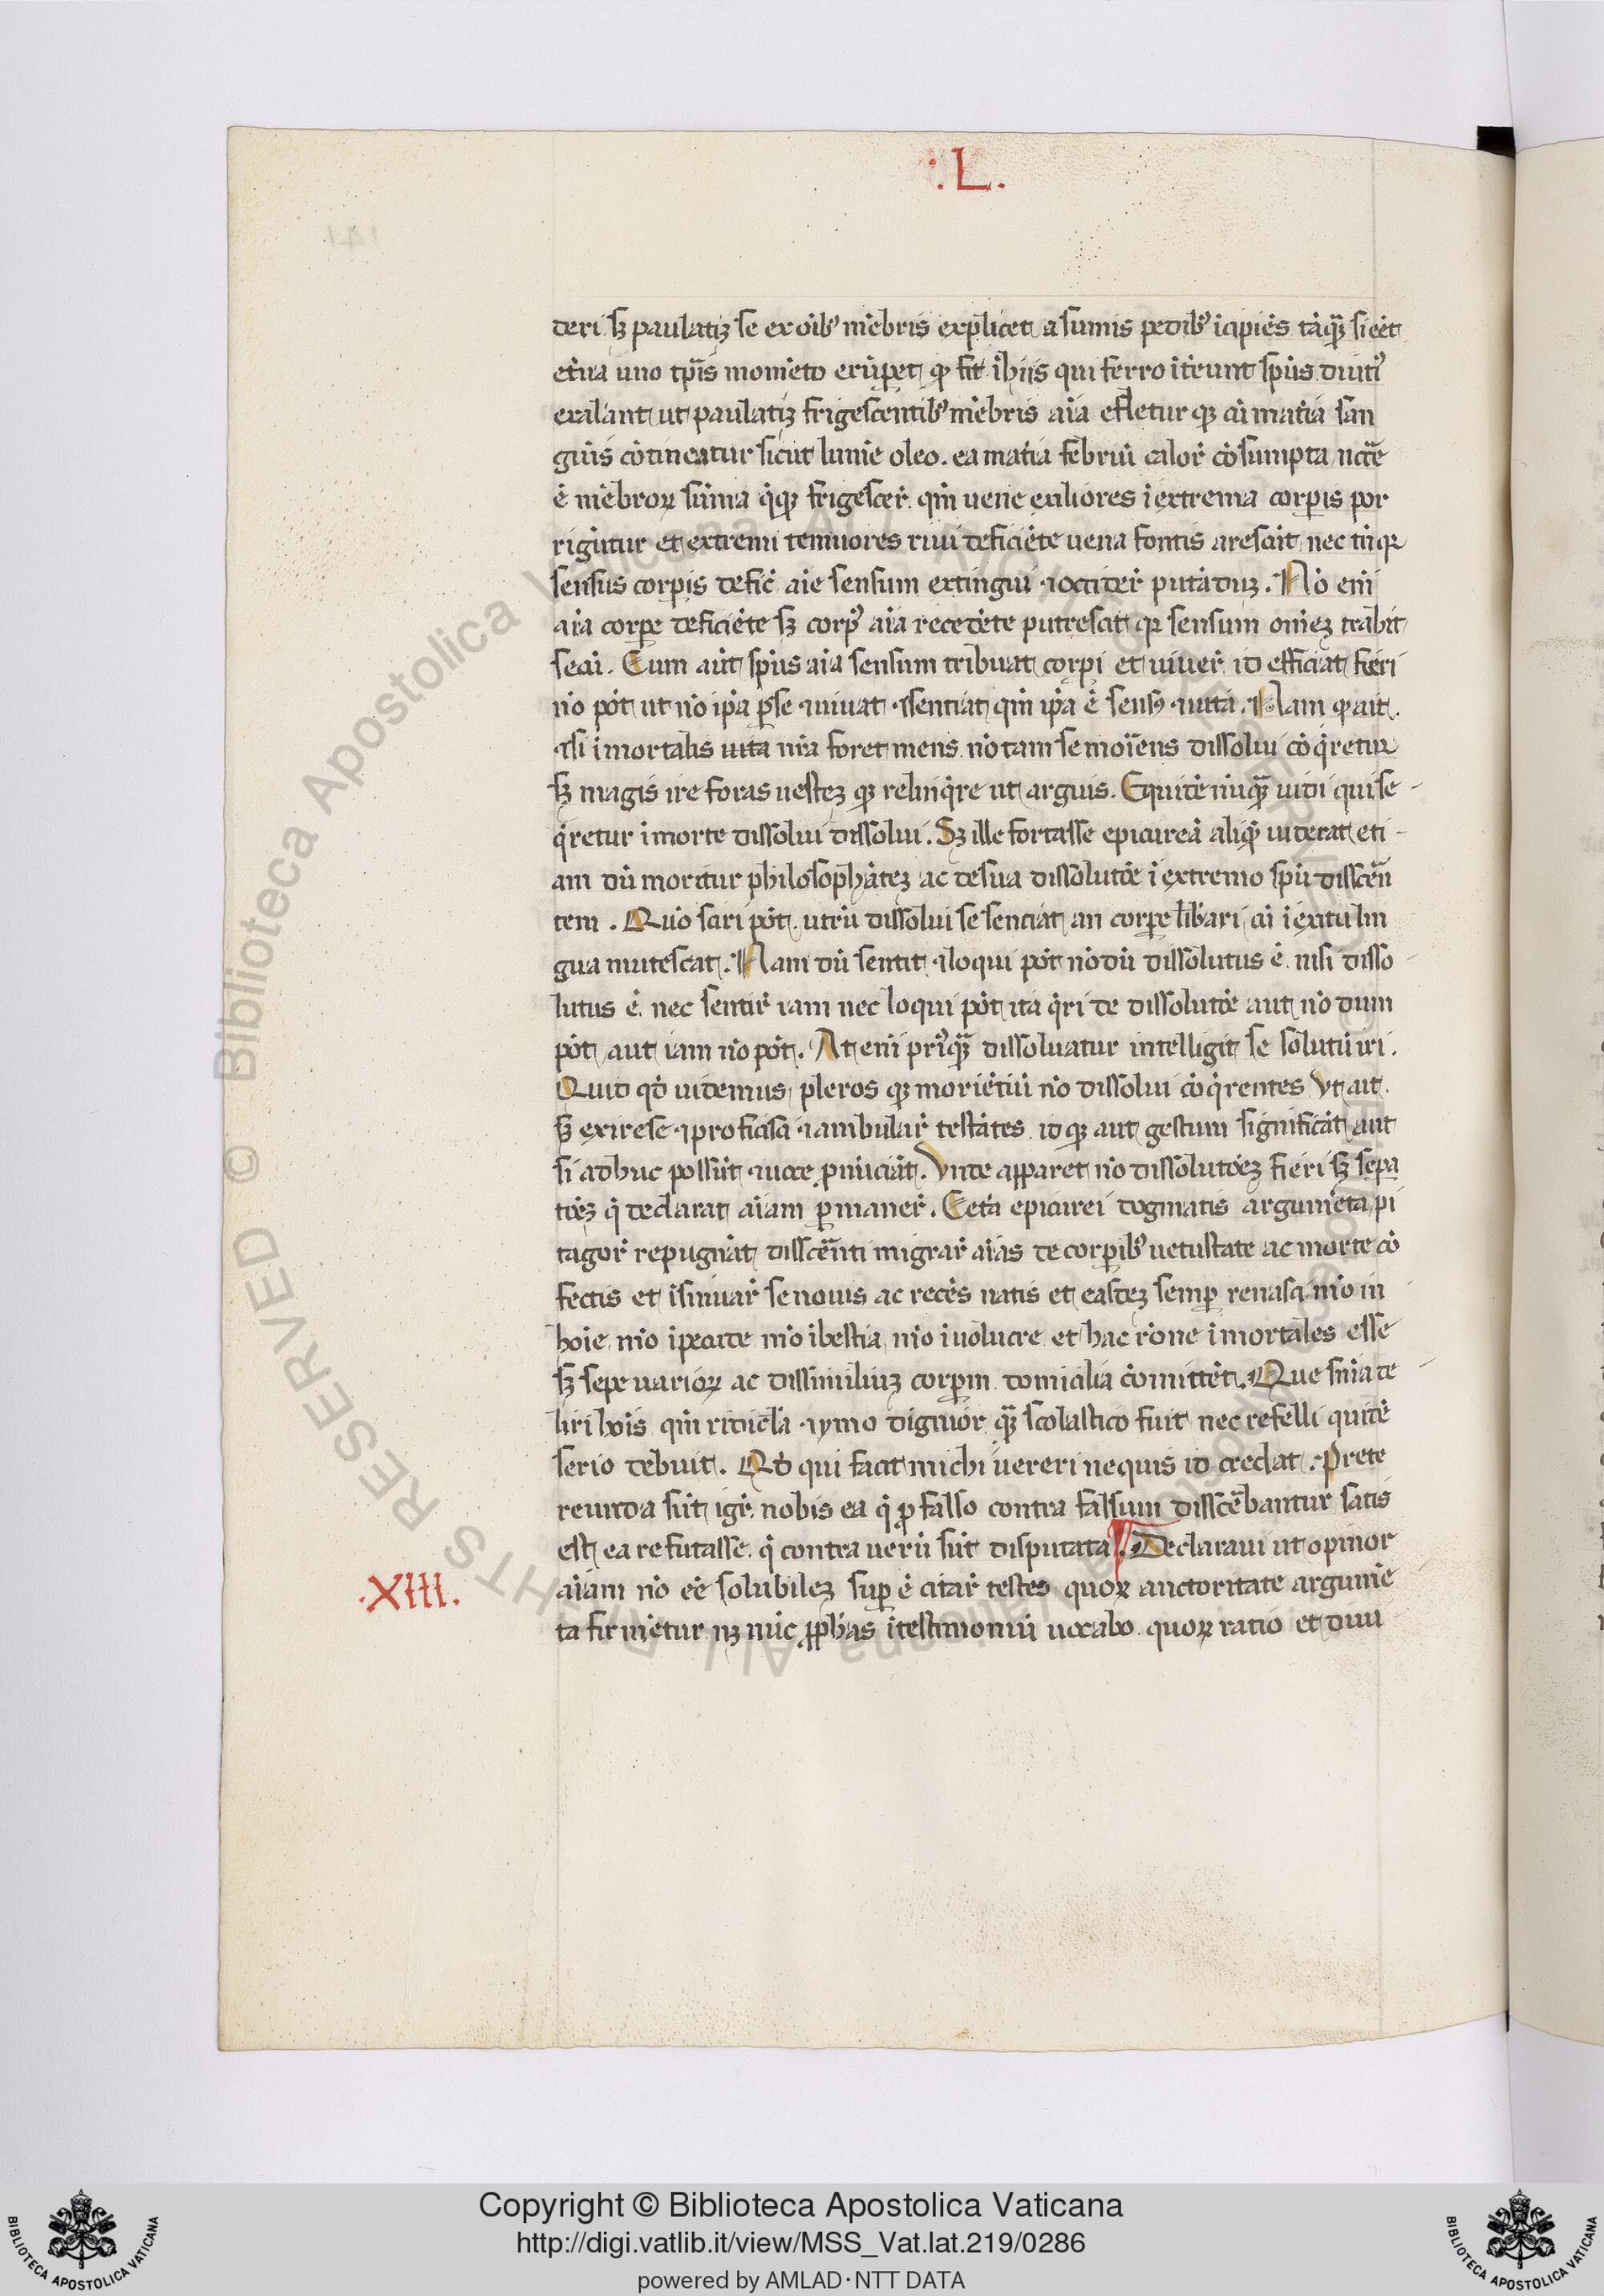 :L.
deri sꝫ paulatiꝫ se ex oı̅bꝰ me̅bris explicet a su̅mis pedibꝰ i̅cipie̅s ta̅qꝫ si ee̅t
et̕na uno tp̅is mome̅to eru̅peret qd̕ fit i̅ hiis qui ferro i̅tereunt sp̅us diuti̕
exalant ut paulatiꝫ frigescentibꝰ me̅bris ai̅a effletur qꝫ cu̅ mat̕ia san
gui̅s co̅tineatur sicut lume̅ oleo. ea mat̕ia febriu̅ calor̕ co̅sumpta ncc̅e
e̅ me̅broꝝ su̅ma q̊qꝫ frigescer̕ qm̅ uene exiliores i̅ extrema corꝑis por
rigu̅tur et extremi tenuiores riui deficie̅te uena fontis arescu̅t nec tn̅ qꝛ
sensus corꝑis defic̕ ai̅e sensum extingui ⁊ occider̕ puta̅duꝫ. No̅ eni̅
ai̅a corꝑe deficie̅te sꝫ corpꝰ ai̅a recede̅te putrescit qꝛ sensum om̅eꝫ trahit
secu̅. Cum au̅t sp̅us ai̅a sensum tribuat corpi et uiuer̕ id efficiat fieri
no̅ po̅t ut no̅ ip̅a ꝑ se ⁊ uiuat ⁊ sentiat qm̅ ip̅a e̅ sensꝰ ⁊ uita. Nam qd̕ ait.
⁊ si i̅mortalis uita nr̅a foret mens no̅ tam se moriens dissolui co̅q̊retur
sꝫ magis ire foras uesteꝫ qꝫ relinq̊re ut a̅guis. Equide̅ nu̅qꝫ uidi qui se
q̊retur i̅ morte dissolui dissolui. Sꝫ ille fortasse epicureu̅ aliqꝫ uiderat eti
am du̅ moritur philosopha̅teꝫ ac de sua dissoluto̅e i̅ extremo sp̅u disseren
tem. Quo̅ sciri po̅t utru̅ dissolui se sentiat an corꝑe lib̕ari cu̅ i̅ exitu lin
gua mutescat. Nam du̅ sentit ⁊ loqui po̅t no̅du̅ dissolutus e̅. nisi disso
lutus e̅. nec sentir̕ iam nec loqui po̅t ita q̊ri de dissoluto̅e aut no̅ dum
po̅t aut iam no̅ po̅t. At eni̅ pri̕ꝰqꝫ dissoluatur intelligit se solutu̅ iri.
Quid qd̕ uidemus pleros qꝫ morie̅tiu̅ no̅ dissolui co̅q̊rentes ut ait.
sꝫ exire se ⁊ proficisci ⁊ ambular̕ testa̅tes. id qꝫ aut gestum significa̅t aut
si adhuc possu̅t ⁊ uoce pronu̅cia̅t. Vnde apparet no̅ dissoluto̅eꝫ fieri sꝫ sepa
to̅eꝫ q̊ declarat ai̅am ꝑmaner̕. Cet̕a epicurei dogmatis argume̅ta pi
tagor̕ repugna̅t disseren̅ti migrar̕ ai̅as de corporibꝰ uetustate ac morte co̅
fectis et i̅sinuar̕ se nouis ac rece̅s natis et easdeꝫ semꝑ renasci mo̅ in
hoi̅e mo̅ i̅ pecude mo̅ i̅ bestia mo̅ i̅ uolucre et hac ro̅ne i̅mortales esse
sꝫ sepe uarioꝝ ac dissimiliuꝫ corꝑum domicilia co̅mittere̅t. Que sn̅ia de
liri ho̅is qm̅ ridicl̅a ⁊ mimo dignior qꝫ scolastico fuit nec refelli quide̅
serio debuit. Qd̕ qui facit michi uereri ne quis id credat. Prete
reunda su̅t igr̕ nobis ea q̊ ꝓ falso contra falsum disserebantur satis
est ea refutasse. q̊ contra ueru̅ su̅t disputata. Declaraui ut opinor
ai̅am no̅ ee̅ solubileꝫ suꝑ e̅ citar̕ testes quoꝝ auctoritate argume̅
ta firme̅tur nꝫ nu̅c ꝓph̅as i̅ testimoniu̅ uocabo quoꝝ ratio et diui
.XIII.
Copyright © Biblioteca Apostolica Vaticana
http://digi.vatlib.it/view/MSS_Vat.lat.219/0286
powered by AMLAD·NTT DATA
BIBLIOTECA APOSTOLICA VATICANA
BIBLIOTECA APOSTOLICA VATICANA